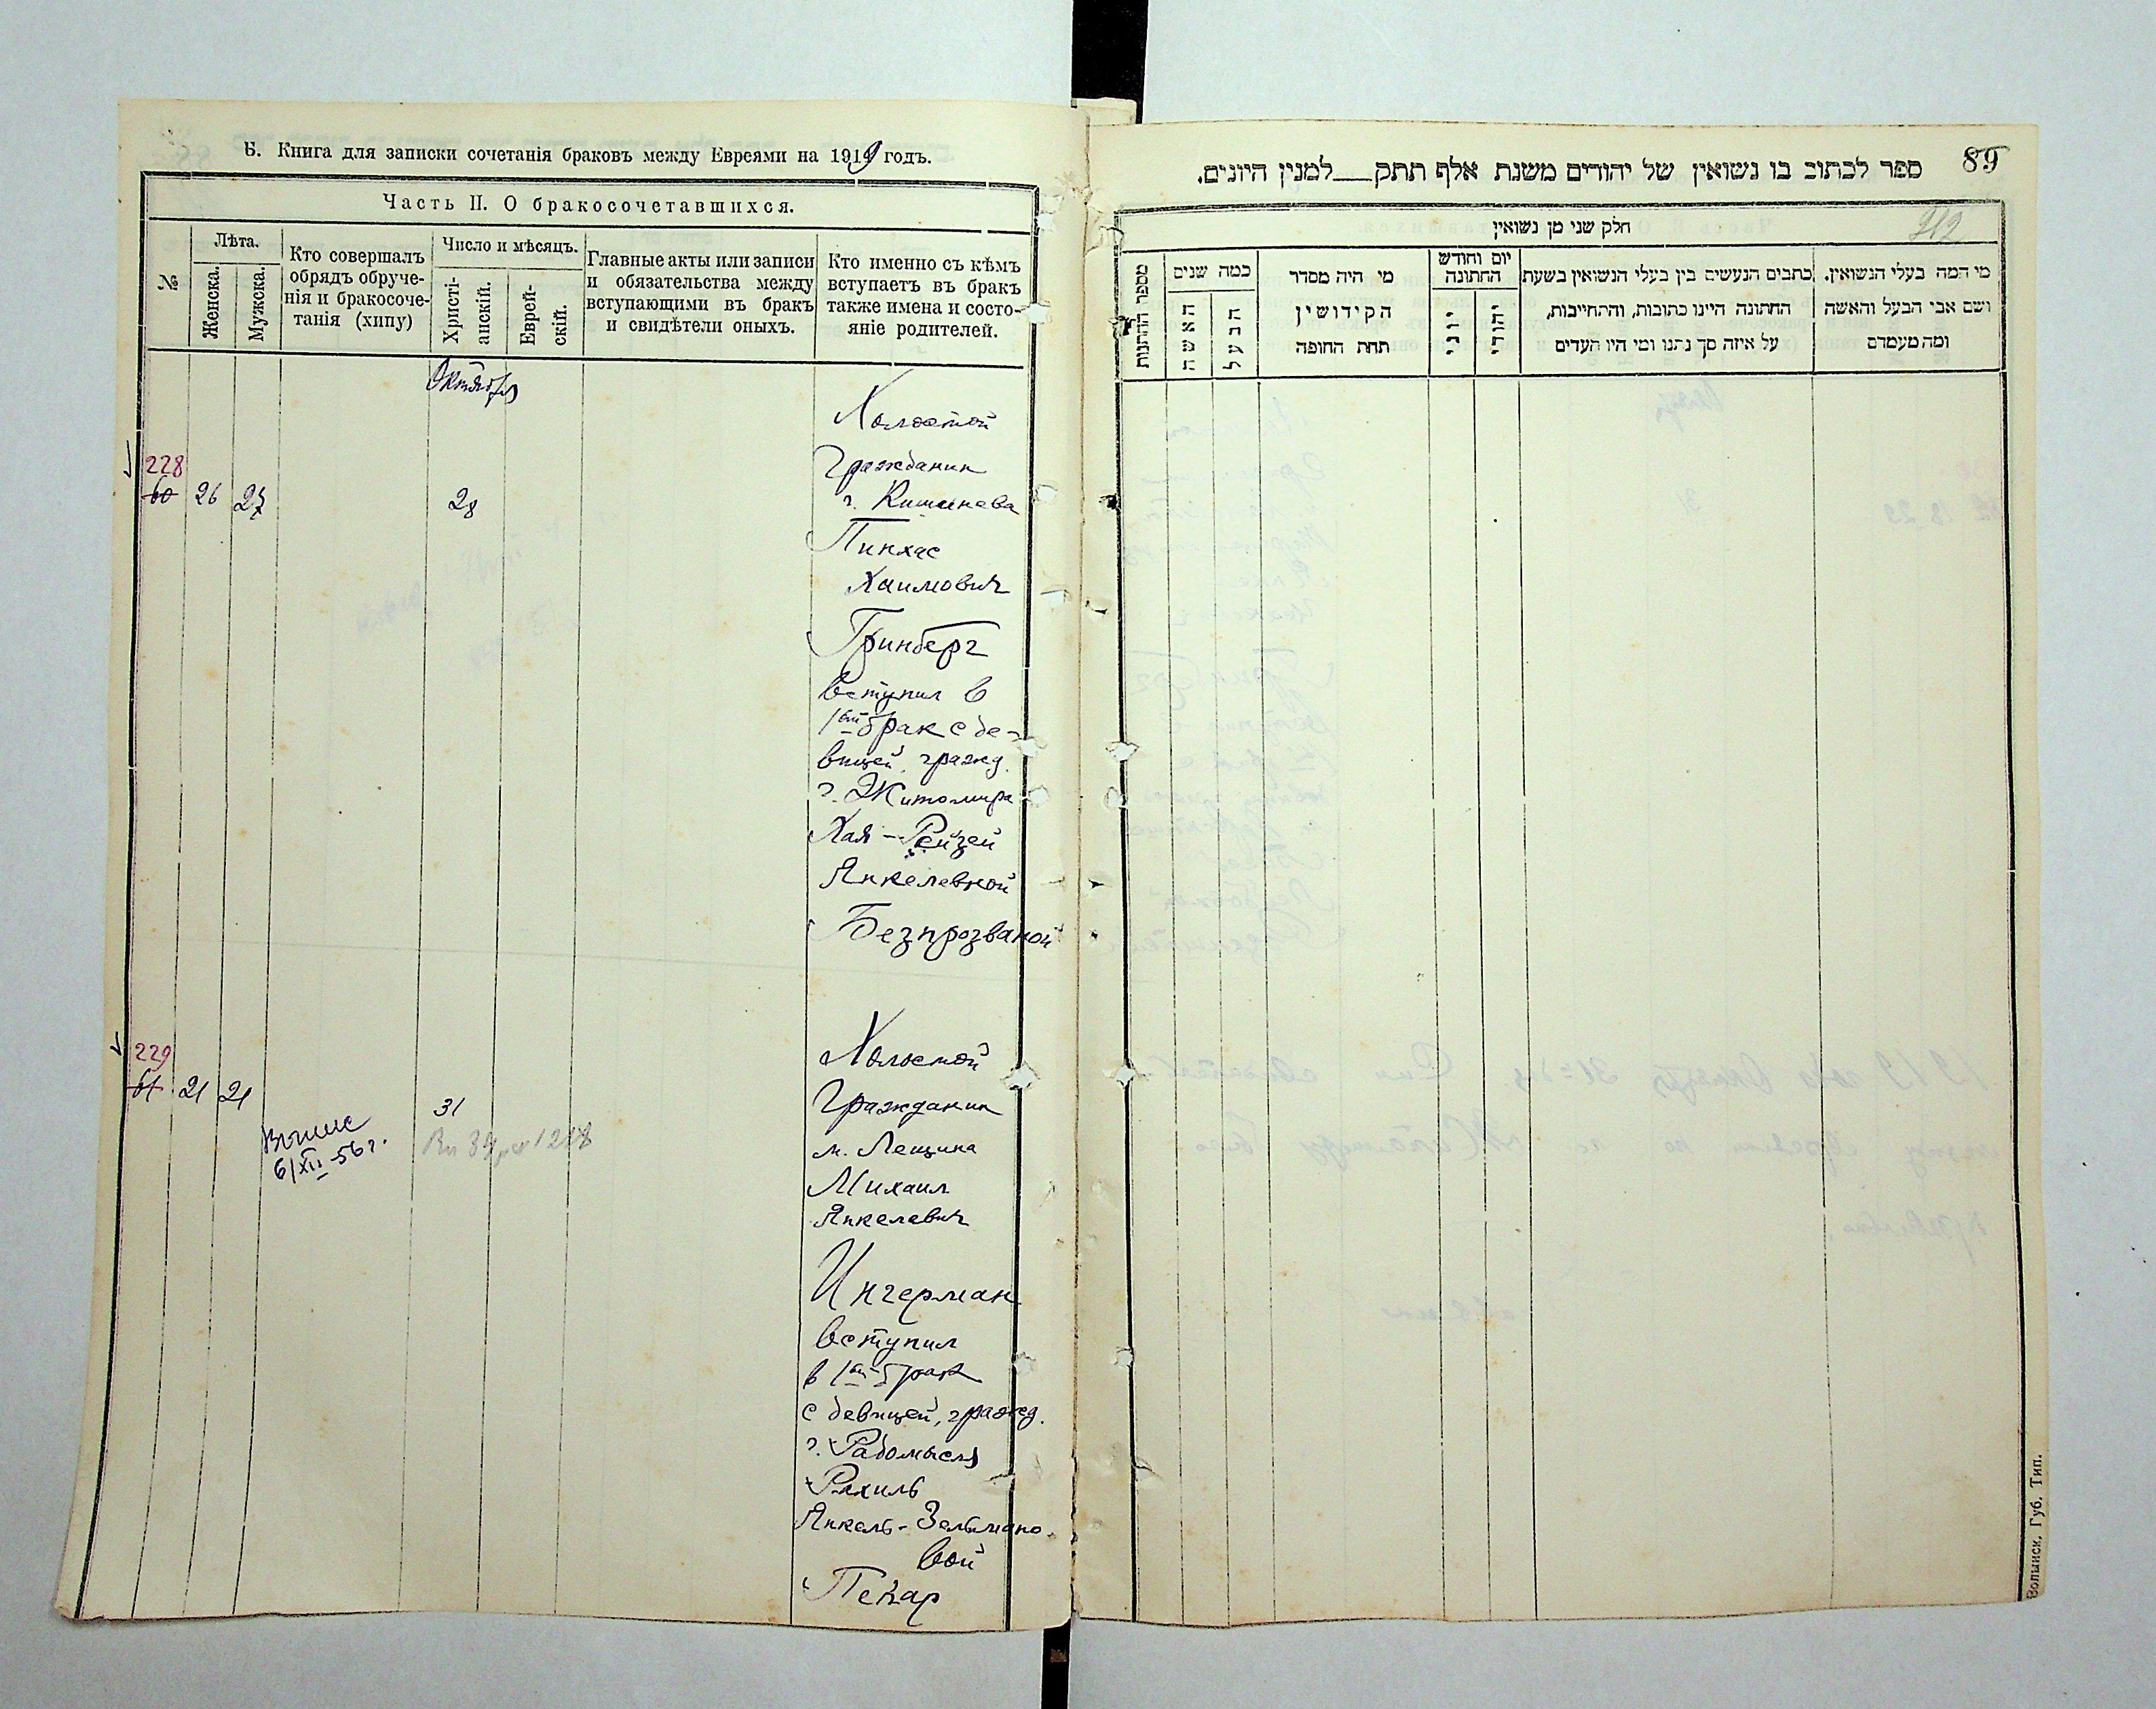 Б. Книга для записки сочетанія браковъ между Евреями на 1919 годъ.
Часть II. О бракосочетавшихся.
№
Лѣта.
Женска.
Мужска.
Кто совершалъ
обрядъ обруче-
нія и бракосоче-
танія (хипу)
Число и мѣсяцъ.
Христі-
анскій.
Еврей-
скій.
Главные акты или записи
и обязательства между
вступающими въ бракъ
и свидѣтели оныхъ.
Кто именно съ кѣмъ
вступаетъ въ бракъ
также имена и состо-
яніе родителей.
Октябрь
228
60 26 27 28
Холостой
Гражданин
г. Кишинева
Пинхас
Хаимович
Гринберг
вступил в
1ый брак с де-
вицей, гражд.
г. Житомира
Хая-Рейзей
Янкелевной
Безпрозваной
229
61 21 21 31
6/XII-56 г.
Холостой
Гражданин
м. Лещина
Михаил
Янкелевич
Ингерман
вступил
в 1ый брак
с девицей, гражд.
г. Радомысля
Рахиль
Янкель-Зельмано-
вой
Пекар
89
ספר לכתוב בו נשואין של יהודים משנת אלף תתק למנין היונים.
212
חלק שני מן נשואין
מספר החתונות
כמה שנים
האשה
הבעל
מי היה מסדר
הקידושין
תחת החופה
יום וחודש
החתונה
יוני
יהודי
כתבים הנעשים בין בעלי הנשואין בשעת
החתונה היינו כתובות, והתחייבות,
על איזה סך נתנו ומי היו העדים
מי המה בעלי הנשואין.
ושם אבי הבעל והאשה
ומה מעמדם
Волынск. Губ. Тип.